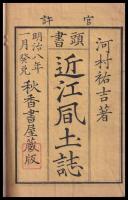 官許
河村祐吉著
頭書
近江風土誌
明治八年
一月発兌
秋香書屋蔵版